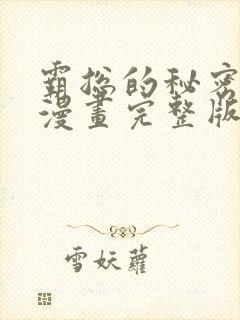 霸總的秘密
漫畫完整版
雪妖蘿